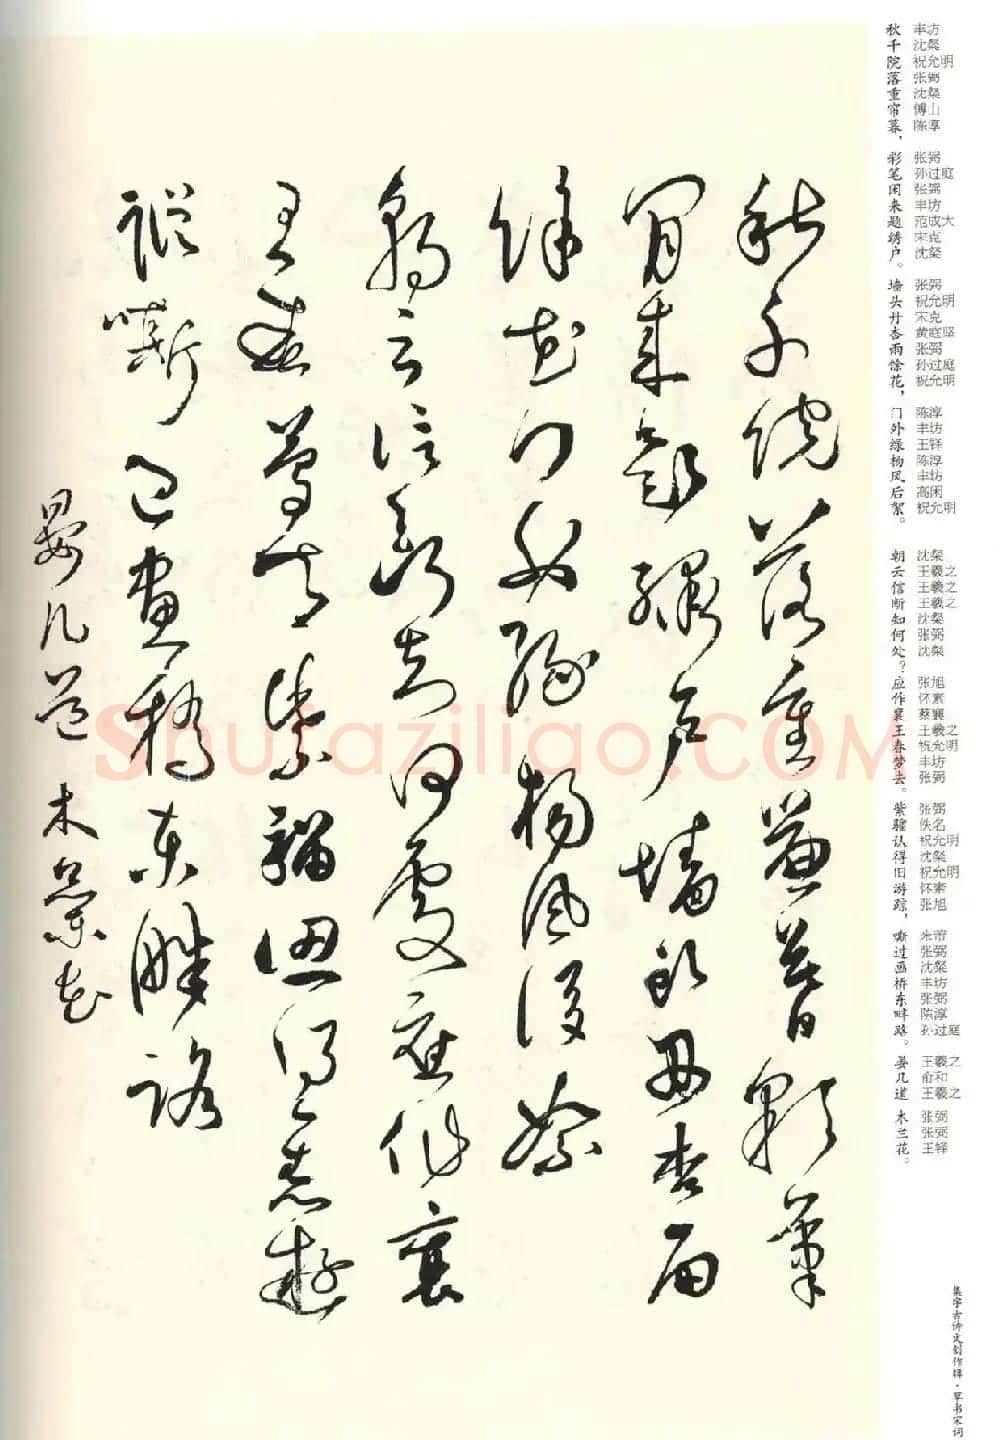 秋千院落重簾暮彩筆
閒來題繡户墻頭丹杏雨
餘花門外緑楊風後絮
朝雲信斷知何處應作襄
王春夢去紫騮認得舊遊
蹤嘶過畫橋東畔路
晏几道 木蘭花
秋 丰坊
千 沈粲
院 祝允明
落 张弼
重 沈粲
帘 傅山
暮， 陈淳
彩 张弼
笔 孙过庭
闲 张弼
来 丰坊
题 范成大
绣 宋克
户。 沈粲
墙 张弼
头 祝允明
丹 宋克
杏 黄庭坚
雨 张弼
馀 孙过庭
花， 祝允明
门 陈淳
外 丰坊
绿 王铎
杨 陈淳
风 丰坊
后 高闲
絮。 祝允明
朝 沈粲
云 王羲之
信 王羲之
断 王羲之
知 沈粲
何 张弼
处？ 沈粲
应 张旭
作 怀素
襄 蔡襄
王 王羲之
春 祝允明
梦 丰坊
去。 张弼
紫 张弼
骝 佚名
认 祝允明
得 沈粲
旧 祝允明
游 怀素
踪， 张旭
嘶 朱芾
过 张弼
画 沈粲
桥 丰坊
东 张弼
畔 陈淳
路。 孙过庭
晏 王羲之
几 俞和
道 王羲之
木 张弼
兰 张弼
花。 王铎
集字古诗文创作辑·草书宋词
Shufaziliao.COM